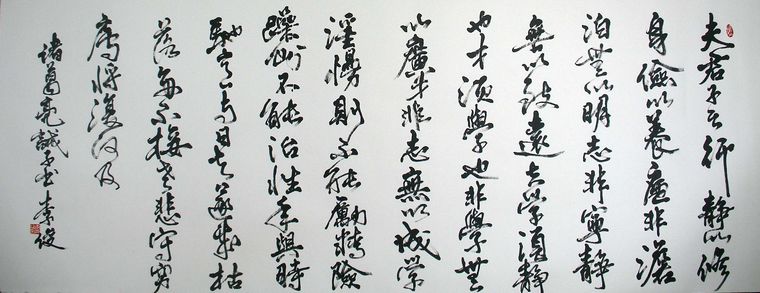 夫君子之行静以修
身儉以養德非澹
泊無以明志非寧静
無以致遠夫学須静
也才須學也非學無
以廣才非志無以成学
淫慢則不能勵精險
躁則不能治性年與時
馳意與日去遂成枯
落多不接世悲守窮
廬將復何及
諸葛亮誡子书李俊